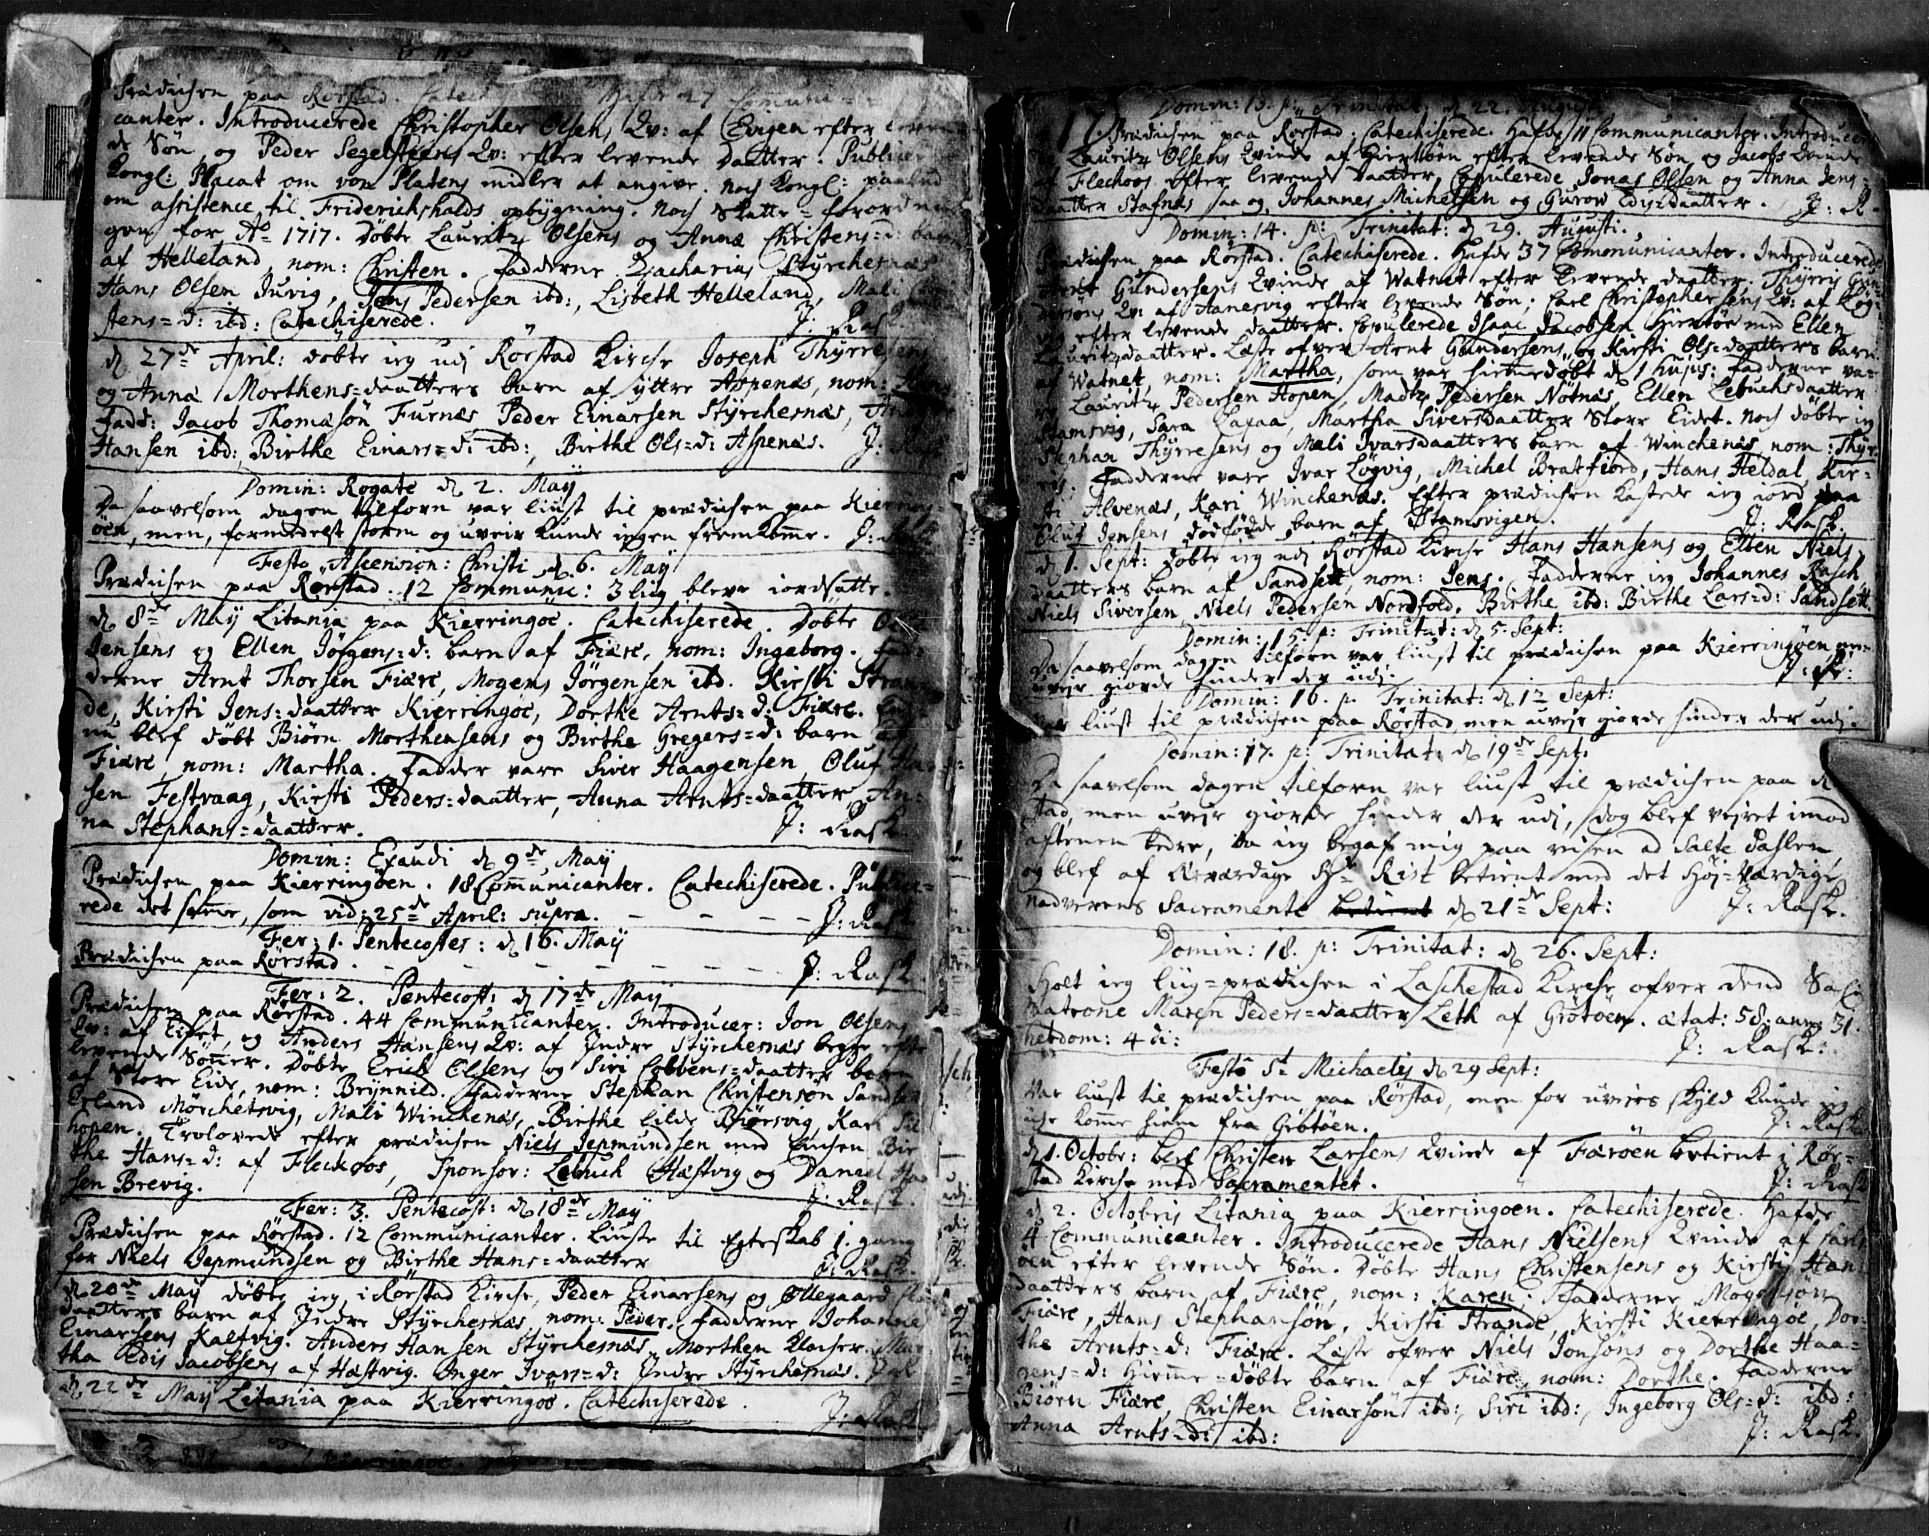 Prædichen paa Rørstad. Catech Hafde 27 Communi=
canter. Introducerede Christopher Olsens Qv: af Evigen efter leven
de Søn, og Peder Segelsteens Qv: efter levende Daatter. Public
Kongl: Placat om von Platens midler at angive. noch Kongl: paabud
om assistence til Friderichshalds opbygning. Noch Skatte=forordnin
gen for Ao 1717. Døbte Lauritz Olsens og Anna Christens=d: barn
af Helleland nom: Christen. Fadderne Zacharias Styrchesnæs
Hans Olsen Juvig, Jens Pedersen ibd:, Lisbeth Helleland, Mali
Jens=d: ibd: Catechiserede. J: Rask
d 27de April: døbte ieg udj Rørstad Kirche Joseph Thyrresens
og Anna Morthens=daatters barn af yttre Aspenæs, nom:
Fadd: Jacob Thomasøn Furnæs Peder Einarsen Styrchesnæs,
Hansen ibd: Birthe Einars=d: ibd:, Birthe Ols=d: Aspenæs. J: Rask
Domin: Rogate d 2. May
Da saavelsom dagen tilforn var liust til prædichen paa Kierring=
øen, men, formedelst storm og uveir kunde ingen fremkomme. J: Rask
Festo Ascension: Christi d 6. May
Prædichen paa Rørstad. 12 Communic: 3 liig bleve iordsatte.
d 8de May Litania paa Kierringøe. Catechiserede. Døbte
Jensens og Ellen Jørgens=d: barn af Fiære, nom: Ingeborg. Fad=
derne Arnt Thorsen Fiære, Mogens Jørgensen ibd. Kirsti Stran
de, Kirsti Jens=daatter Kierringøe, Dorthe Arnts=d: Fiære.
nu blef døbt Biørn Morthensens og Birthe Gregers=d: barn af
Fiære, nom: Martha. Fadder vare Siver Haagensen, Oluf
sen Festvaag, Kirsti Peders=daatter, Anna Arnts=daatter, An=
na Stephans=daatter. J: Rask
Domin: Exaudi d 9de May
Prædichen paa Kierringøen. 18 Communicanter. Catechiserede. Public=
rede det samme, som vid: 25de April: supra. J: Rask
Fer: 1. Pentecostes: d 16. May
Prædichen paa Rørstad. J: Rask.
Fer: 2. Pentecost: d 17de May
Prædichen paa Rørstad. 44 Communicanter. Introducer: Jon Olsens
Qv: af Eidet, og Anders Hansens Qv: af Indre Styrchesnæs begge efter
levende Sønner. Døbte Erich Olsens og Siri Cobbens=daatter barn
af Store Eide, nom: Brynnild. Fadderne Stephan Christensøn Sandset
Erland Mørchesvig, Mali Winchenæs, Birthe lilde Biørsvig, Kari
hopen. Trolovede efter prædichen Niels Jepmundsen med Enchen Bir
the Hans=d: af Flechoos, Sponsor: Lebuch Hæstvig og Daniel
sen Brevig. J: Rask.
Fer: 3. Pentecost: d 18de May
Prædichen paa Rørstad. 12 Communicanter. Liuste til Egteskab 1. gang
for Niels Jepmundsen og Birthe Hans=daatter J: Rask.
d 20de May døbte ieg i Rørstad Kirche, Peder Einarsens og Ollegaard
daatters barn af Indre Styrchesnæs, nom: Peder. Fadderne Johannes
Einarsens Kalfvig. Anders Hansen Styrchesnæs, Morthen Klocher. Mar
tha Edis Jacobsens af Hæstvig. Inger Ivars=d: Indre Styrchesnæs.
d 22de May Litania paa Kierringøe. Catechiserede. J: Rask
Domin: 13. p: Trinitat: d 22. Augusti
Prædichen paa Rørstad. Catechiserede. Hafde 11 Communicanter. Introducer
Lauritz Olsens Qvinde af Giertøen efter levende Søn og Jacobs Qvinde
af Flechoos efter levende Daatter, Copulerede Jonas Olsen og Anna Jens=
daatter Stafnes saa og Johannes Michelsen og Gurow Edis=daatter. J: R.
Domin: 14. p: Trinitat: d 29. Augusti.
Prædichen paa Rørstad. Catechiserede. Hafde 37 Communicanter. Introducerede
Arnt Gundersens Qvinde af Watnet efter levende daatter, Thyrris Gun=
dersens Qv: af Aanesvig efter levende Søn, Carl Christophersens Qv: af Løg=
vig efter levende daatter. Copulerede Isaac Jacobsen Giertøe med Ellen
Lauritzdaatter. Læste ofver Arnt Gundersens og Kirsti Ols=daatters barn
af Watnet, nom: Martha, som var hiemedøbt d 1 hujus: Fadderne va=
re Lauritz Pedersen Hopen, Madtz Pedersen Nøtnæs, Ellen Lebuchsdaatter
Stamsvig, Sara Laxaa, Martha Siversdaatter Store Eidet. Noch døbte ieg
Stephan Thyrresens og Mali Ivarsdaatters barn af Winchenæs nom: Thyr=
res. Fadderne vare Ivar Løgvig, Michel Bratfiord, Hans Heldal, Kir=
sti Alvenæs, Kari Winchenæs. Efter prædichen kastede ieg iord paa
Oluf Jensens dødfødde barn af Stamsvigen. J: Rask.
d 1. Sept: døbte ieg udj Rørstad Kirche Hans Hansens og Ellen Niels
daatters barn af Sandsett, nom: Jens. Fadderne ieg Johannes Rasch
Niels Siversen, Niels Pedersen Nordfold. Birthe ibd: Birthe Lars=d: Sandsett
Domin: 15. p: Trinitat: d 5. Sept:
Da saavelsom dagen tilforn var liust til prædichen paa Kierringøen men
uvejr giorde hinder der udj. J: R:
Domin: 16. p. Trinitat: d 12 Sept:
Var liust til prædichen paa Rørstad men uvejr giorde hinder der udj.
Domin: 17. p: Trinitat: d 19de Sept:
Da saavelsom dagen tilforn var liust til prædichen paa R
stad, men uvejr giorde hinder der udj, dog blef vejret imod
aftenen bedre, da ieg begaf mig paa reisen ad Salte Dahlen,
og blef af Ærværdige Hr Rist betient med det Høj=værdige
nadverens Sacramente betient d 21de Sept: J: Rask.
Domin: 18. p: Trinitat: d 26. Sept:
Holt ieg liig=prædichen i Laschestad Kirche ofver dend Sal
Matrone Maren Peders=daatter Leth af Grøtøen. ætat: 58. ann: 31.
hebdom: 4 di: J: Rask:
Festo St Michaelis d 29 Sept:
Var liust til prædichen paa Rørstad, men for uveirs skyld kunde ieg
iche komme hiem fra Grøtøen. J: Rask
d 1. Octobr: blef Christen Larsens Qvinde af Færøen betient i Rør=
stad Kirche med Sacramentet. J: Rask
d 2. Octobris Litania paa Kierringøen. Catechiserede. Hafde
4 Communicanter. Introducerede Hans Nielsens Qvinde af
øen efter levende Søn. Døbte Hans Christensens og Kirsti Hans
daatters barn af Fiære, nom: Karen. Fadderne Mogensøn
Fiære, Hans Stephansøn, Kirsti Strande, Kirsti Kierringøe, Dor=
the Arnts=d: Fiære. Læste ofver Niels Jonsøns og Dorthe Haa=
gens=d: Hiemme=døbte barn af Fiære, nom: Dorthe. Fadderne
Biørn Fiære, Christen Einarsøn ibd:, Siri ibd:, Ingeborg Ols=d: ibd:
Anna Arnts=d: ibd: J: Rask.